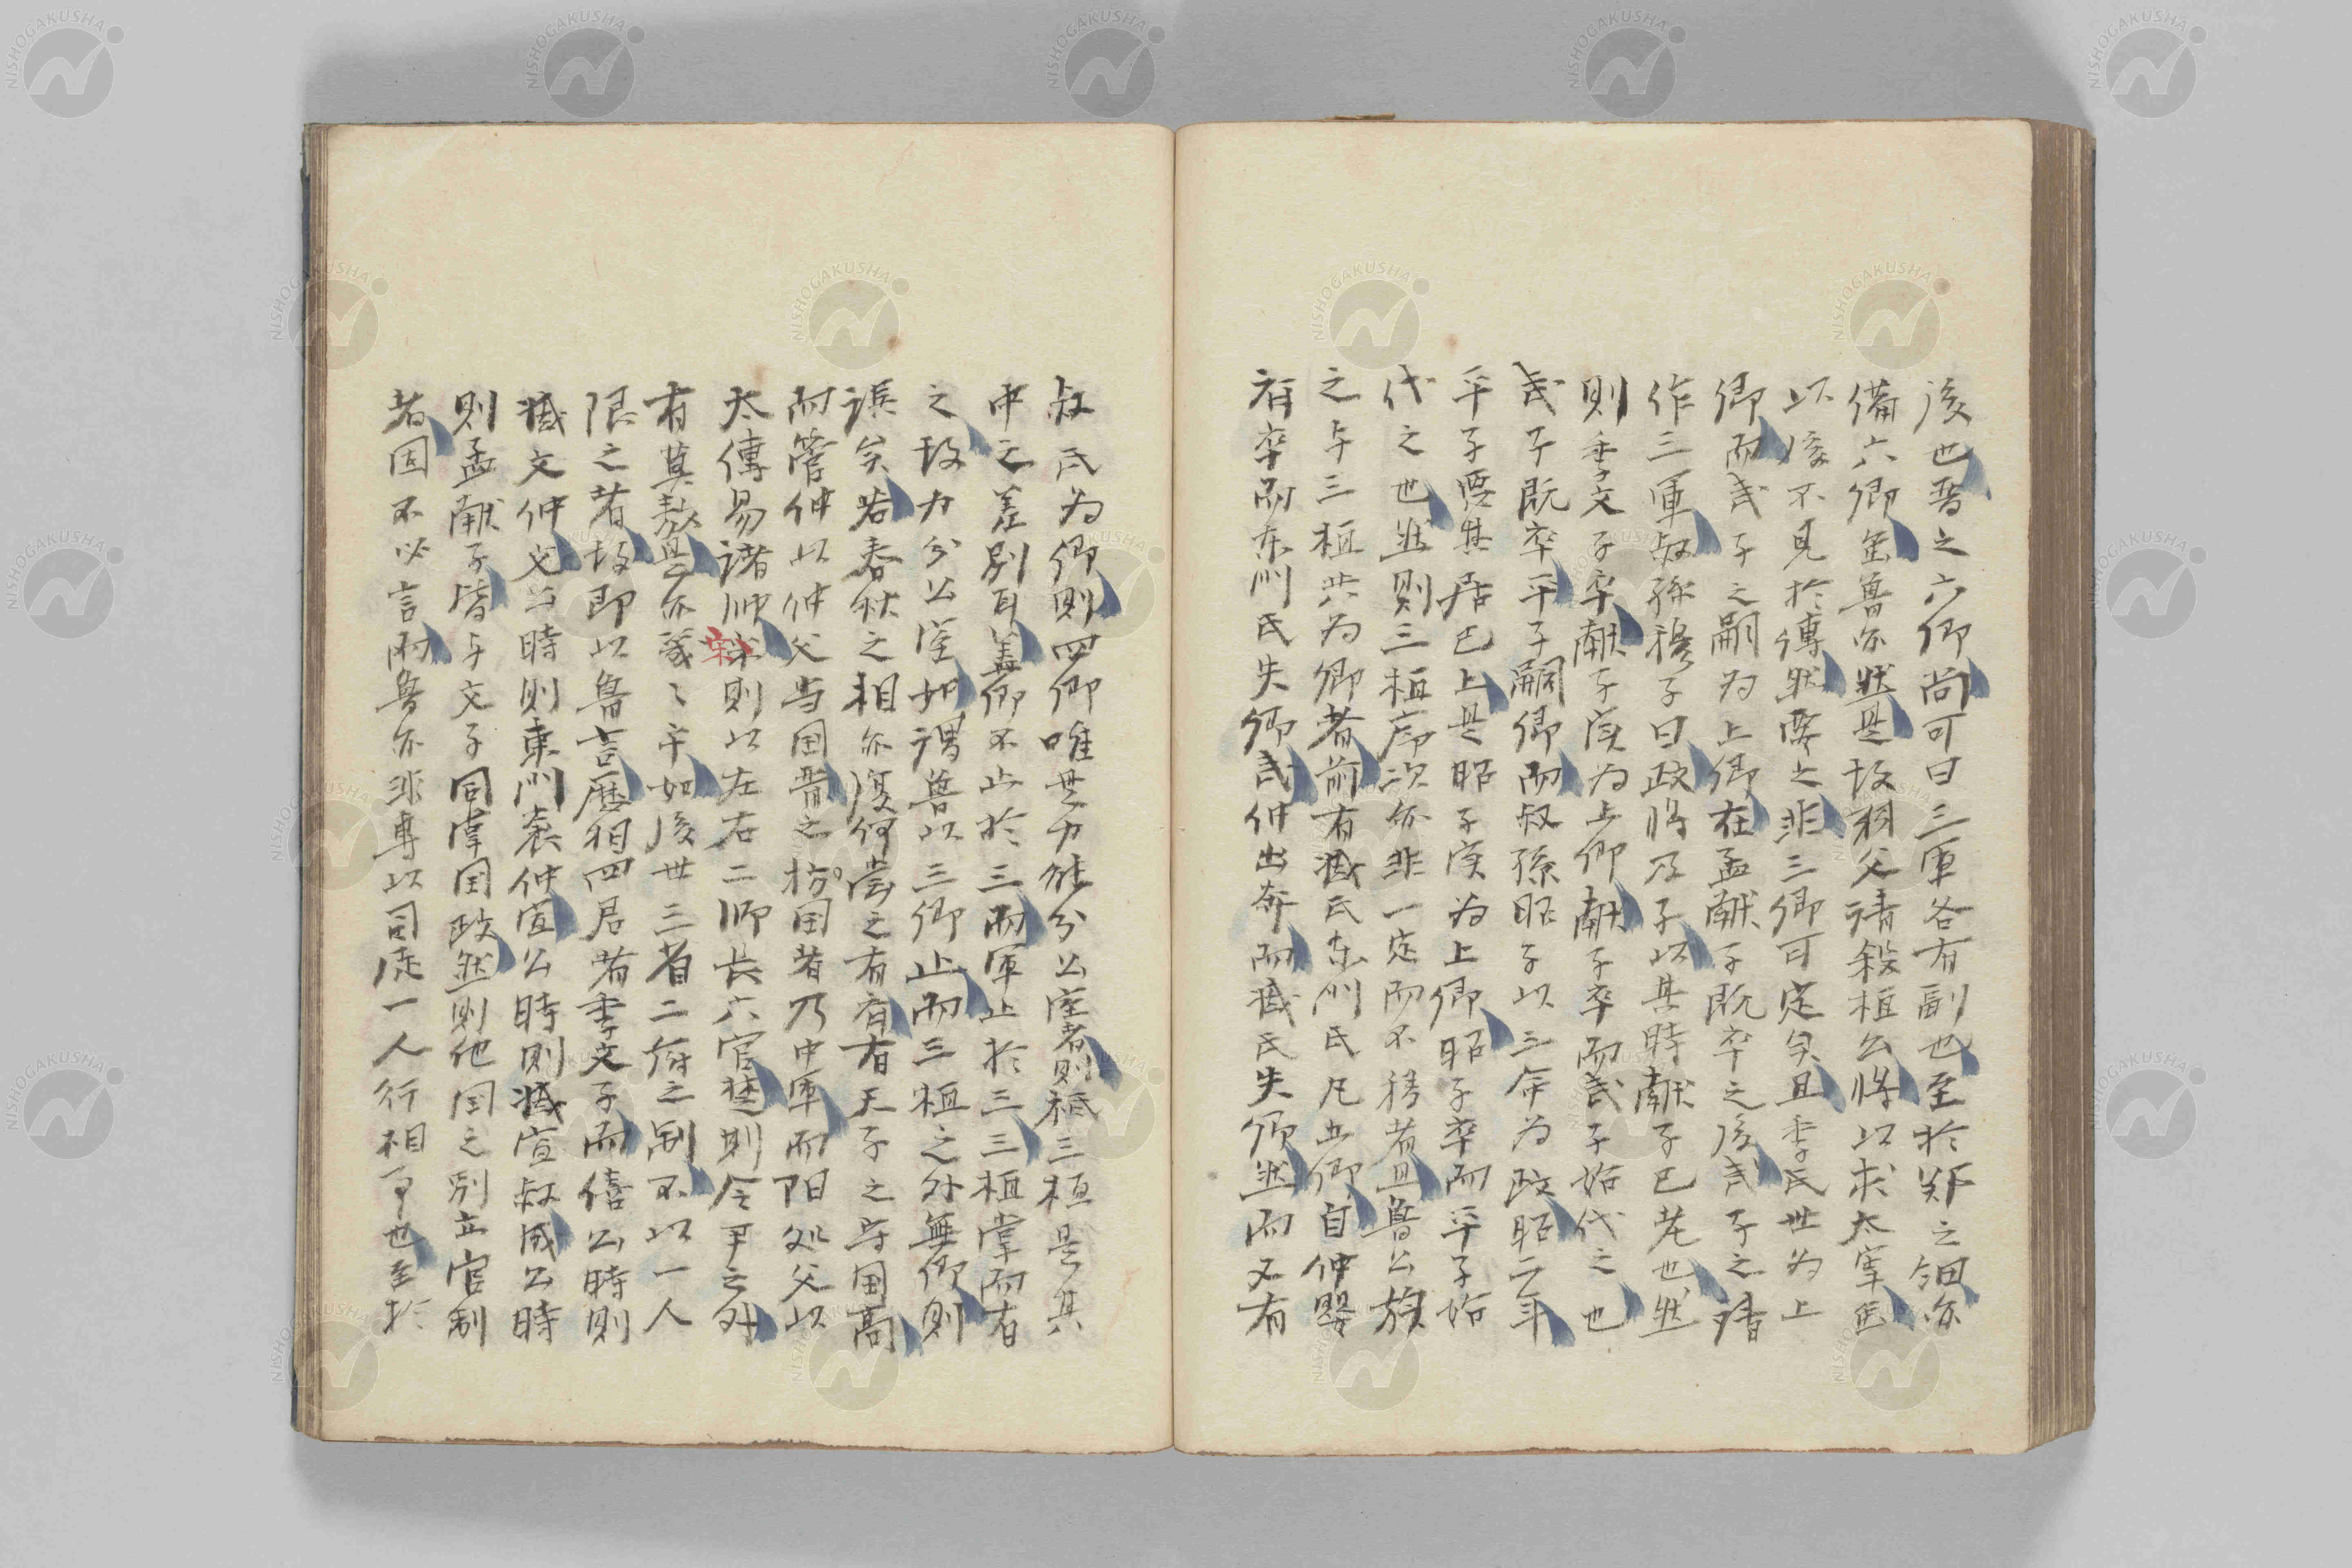 後也晋之六卿尚可曰三軍各有副也至於郑之細亦
備六卿焉魯亦然是故羽父請殺桓公将以求太宰焉
以後不見於傳然要之非三卿可定矣且季氏世為上
卿而武子之嗣為上卿在孟献子既卒之後武子之請
作三軍叔孫穆子曰政将及子以其時献子已老也然
則季文子卒献子実為上卿献子卒而武子始代之也
武子既卒平子嗣卿而叔孫昭子以三命為政昭二年
平子要其居己上是昭子実為上卿昭子卒而平子始
代之也然則三桓序次亦非一定而不移者且魯公族
之与三桓共為卿者前有臧氏東門氏凡五卿自仲嬰
有卒而東門氏失卿武仲出奔而臧氏失須然而又有
叔氏為卿則四卿唯其力能分公室者則祗三桓是其
中之差別耳蓋卿不止於三而軍止於三三桓掌而有
之故力分公室如謂魯以三卿止而三桓之外無卿則
誤矣若春秋之相亦復何嘗之有有天子之守国高
而管仲以仲父当国晋之掌国者乃中軍而陽処父以
太傳易諸帥宋則以左右二師長六官楚則令尹之外
有莫敖是亦幾々乎如後世三省二府之制不以一人
限之者故即以魯言歴相四君者季文子而僖公時則
臧文仲父公時則東門襄仲宣公時則臧宣叔成公時
則孟献子皆与文子同掌国政然則他国之別立官制
者固不必言而魯亦非専以司徒一人行相事也至於